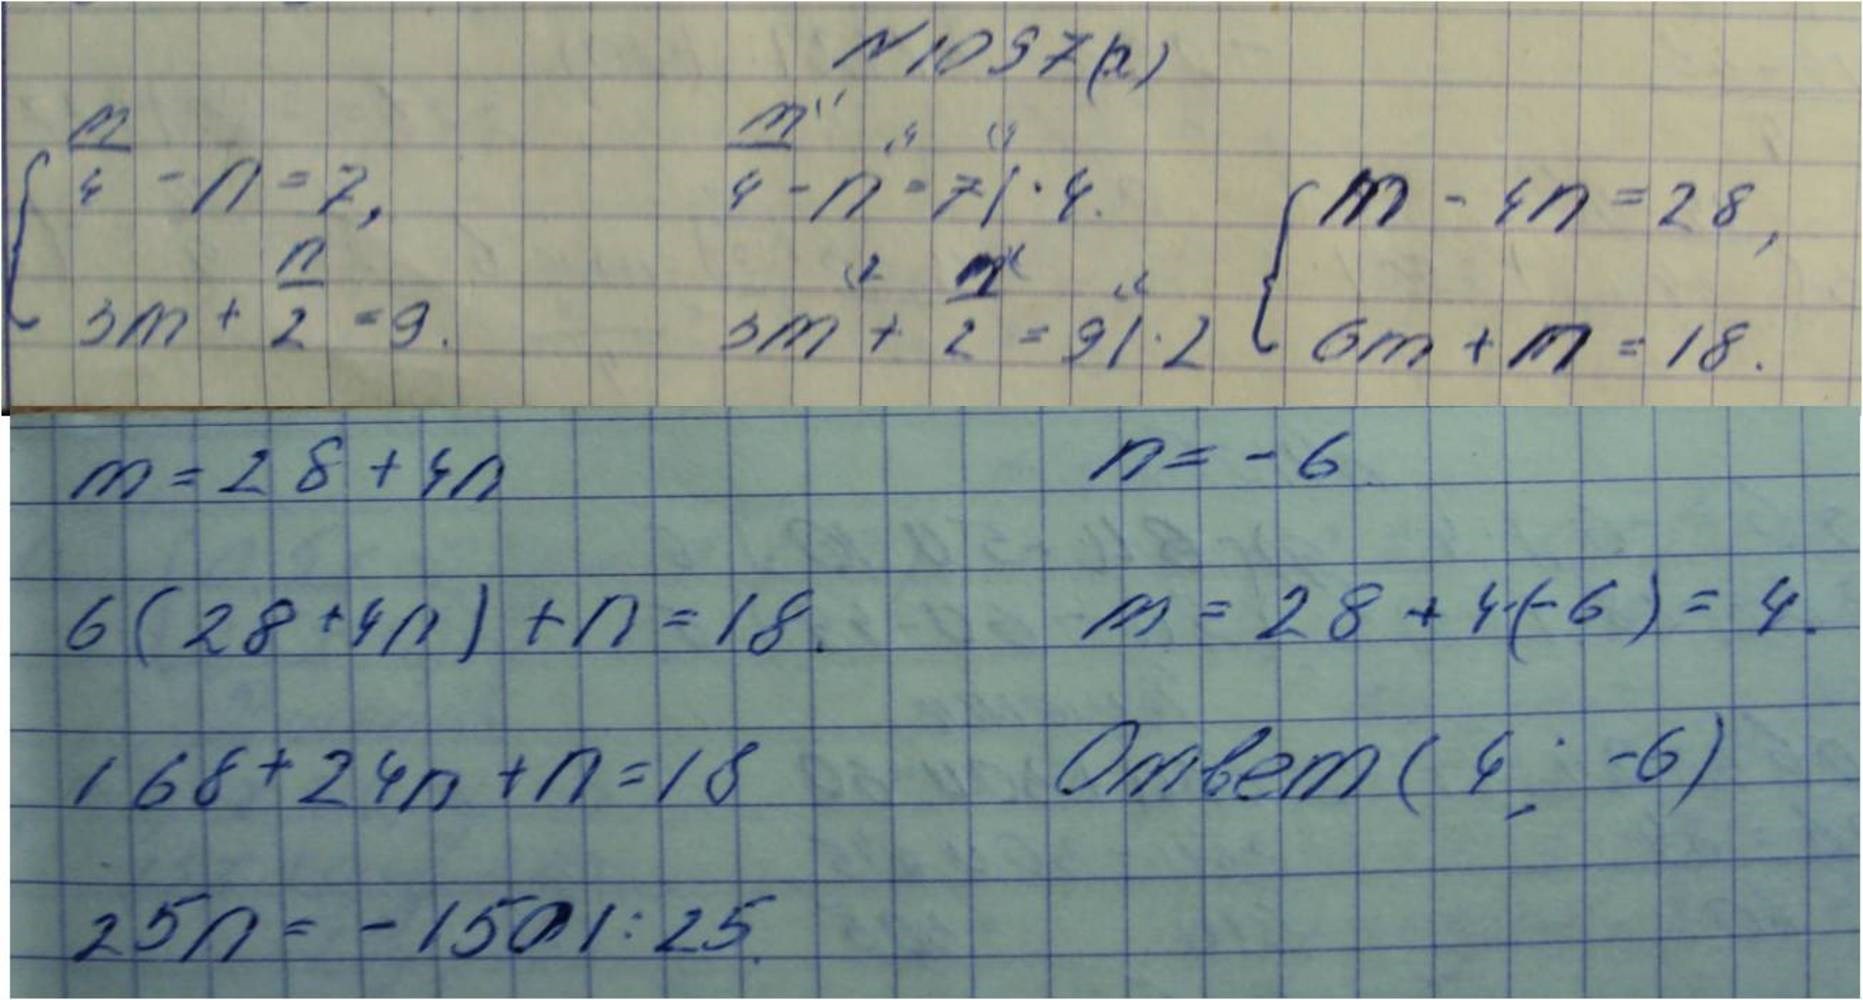 №1097(а)
{ m/4 - n = 7,
3m + n/2 = 9.
m/4 - n = 7 | · 4.
3m + n/2 = 9 | · 2
{ m - 4n = 28,
6m + n = 18.
m = 28 + 4n
6(28 + 4n) + n = 18.
168 + 24n + n = 18
25n = -150 | : 25.
n = -6
m = 28 + 4·(-6) = 4.
Ответ (4; -6)